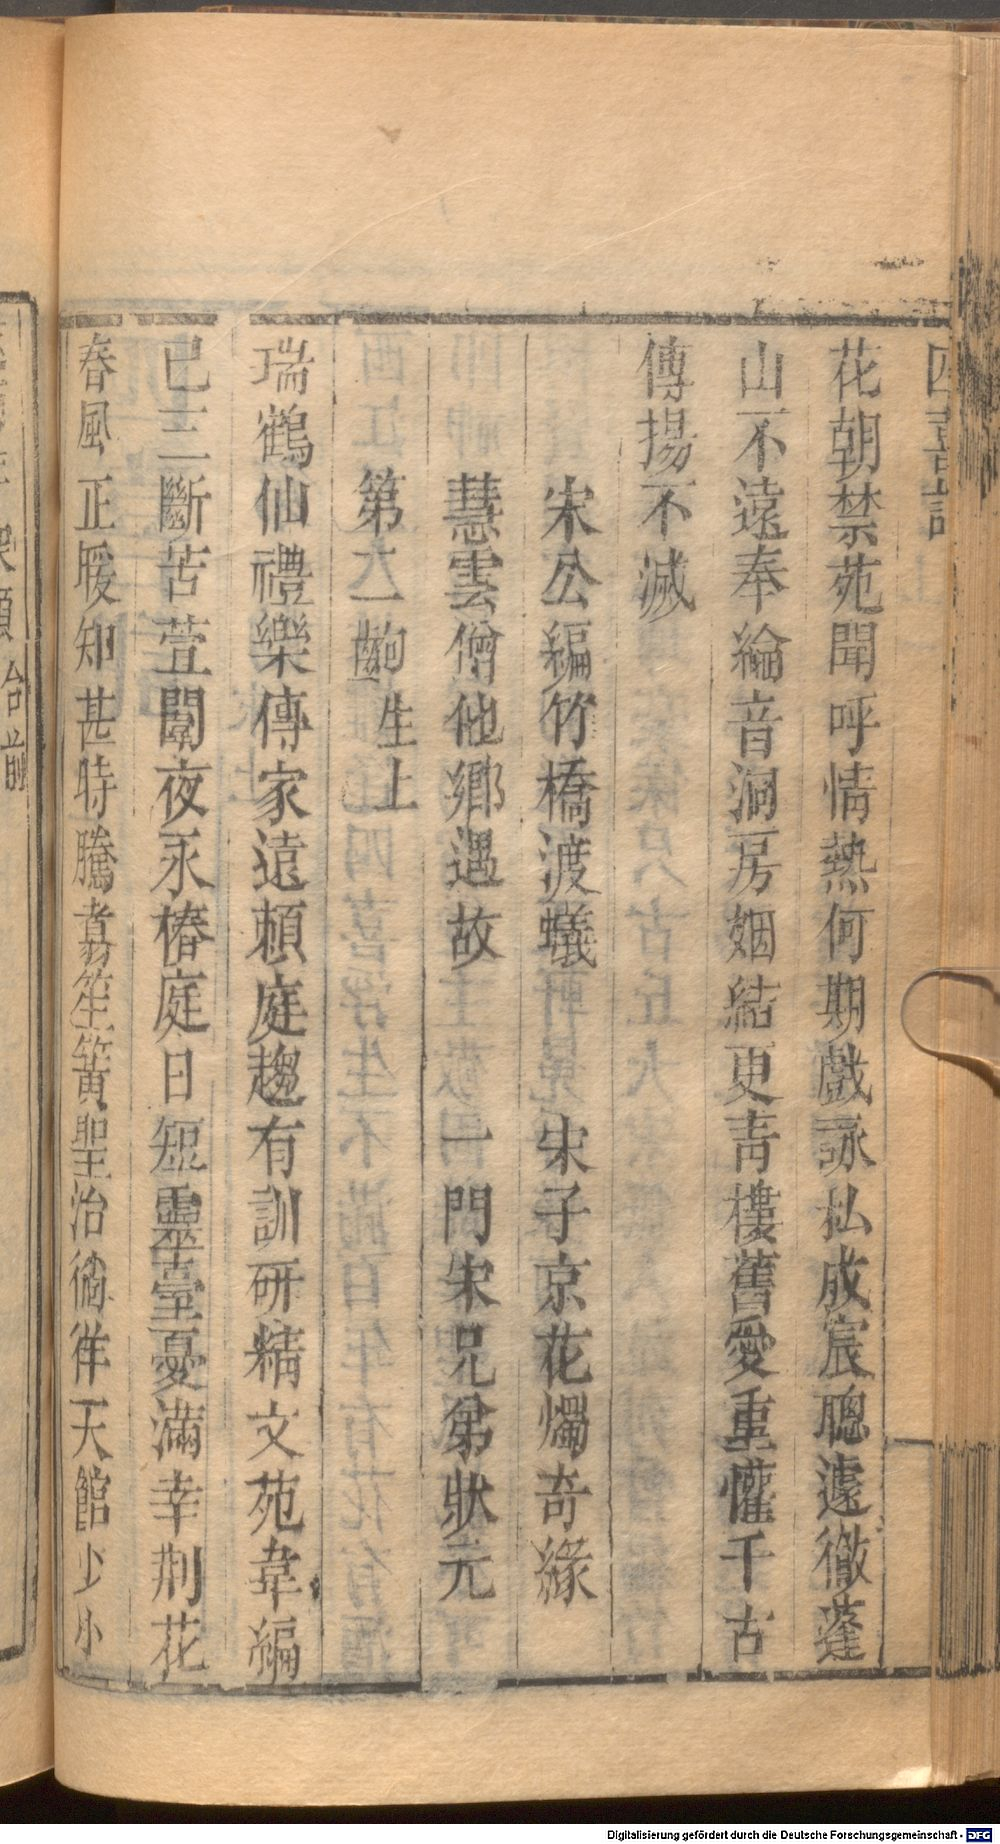 四喜記
花朝禁苑聞呼情熱何期戲詠払成宸聰遽徹蓬
山不遠奉綸音洞房姻結更青樓舊愛重懽千古
傳揚不滅
宋公編竹橋渡蟻　宋子京花燭奇緣
慧雲僧他鄉遇故　一門宋兄弟狀元
第二齣 生上
瑞鶴仙禮樂傳家遠頼庭趨有訓研精文苑韋編
已三斷苦萱闈夜永椿庭日短靈臺憂滿幸荆花
春風正暖知甚時騰翥笙簧聖治徜徉天館少小
Digitalisierung gefördert durch die Deutsche Forschungsgemeinschaft - DFG